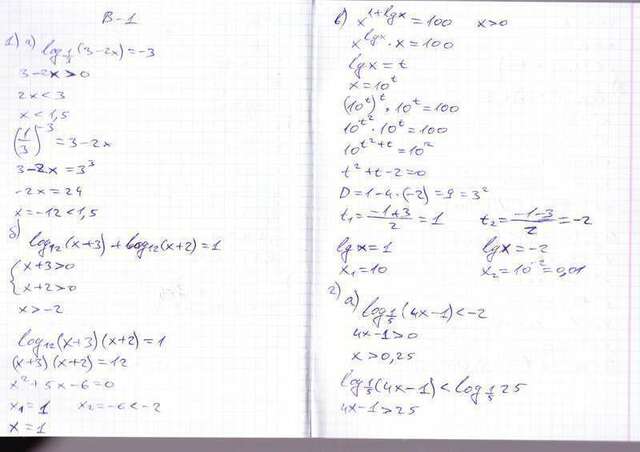 В-1
1) а) log₁/₃(3-2x)=-3
3-2x>0
2x<3
x<1,5
(1/3)⁻³=3-2x
3-2x=3³
-2x=24
x=-12<1,5
б) log₁₂(x+3)+log₁₂(x+2)=1
{ x+3>0
x+2>0
x>-2
log₁₂(x+3)(x+2)=1
(x+3)(x+2)=12
x²+5x-6=0
x₁=1 x₂=-6<-2
x=1
в) x^(1+lgx)=100 x>0
x^(lgx)·x=100
lgx=t
x=10ᵗ
(10ᵗ)ᵗ·10ᵗ=100
10^(t²)·10ᵗ=100
10^(t²+t)=10²
t²+t-2=0
D=1-4·(-2)=9=3²
t₁=(-1+3)/2=1 t₂=(-1-3)/2=-2
lgx=1 lgx=-2
x₁=10 x₂=10⁻²=0,01
2) а) log₁/₅(4x-1)<-2
4x-1>0
x>0,25
log₁/₅(4x-1)<log₁/₅25
4x-1>25